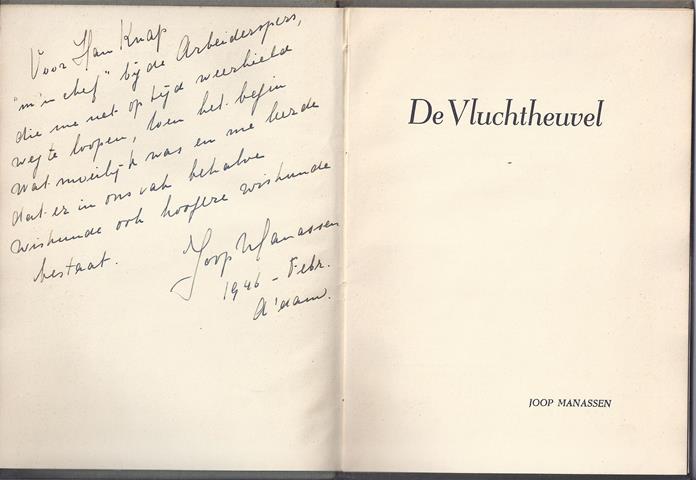 Voor Han Knap
"m'n chef" bij de Arbeiderspers,
die me net op tijd weerhield
weg te loopen, toen het begin
wat moeilijk was en me leerde
dat er in ons vak behalve
wiskunde ook hoogere wiskunde
bestaat.
Joop Manassen
1946 - Febr.
A'dam.
De Vluchtheuvel
JOOP MANASSEN